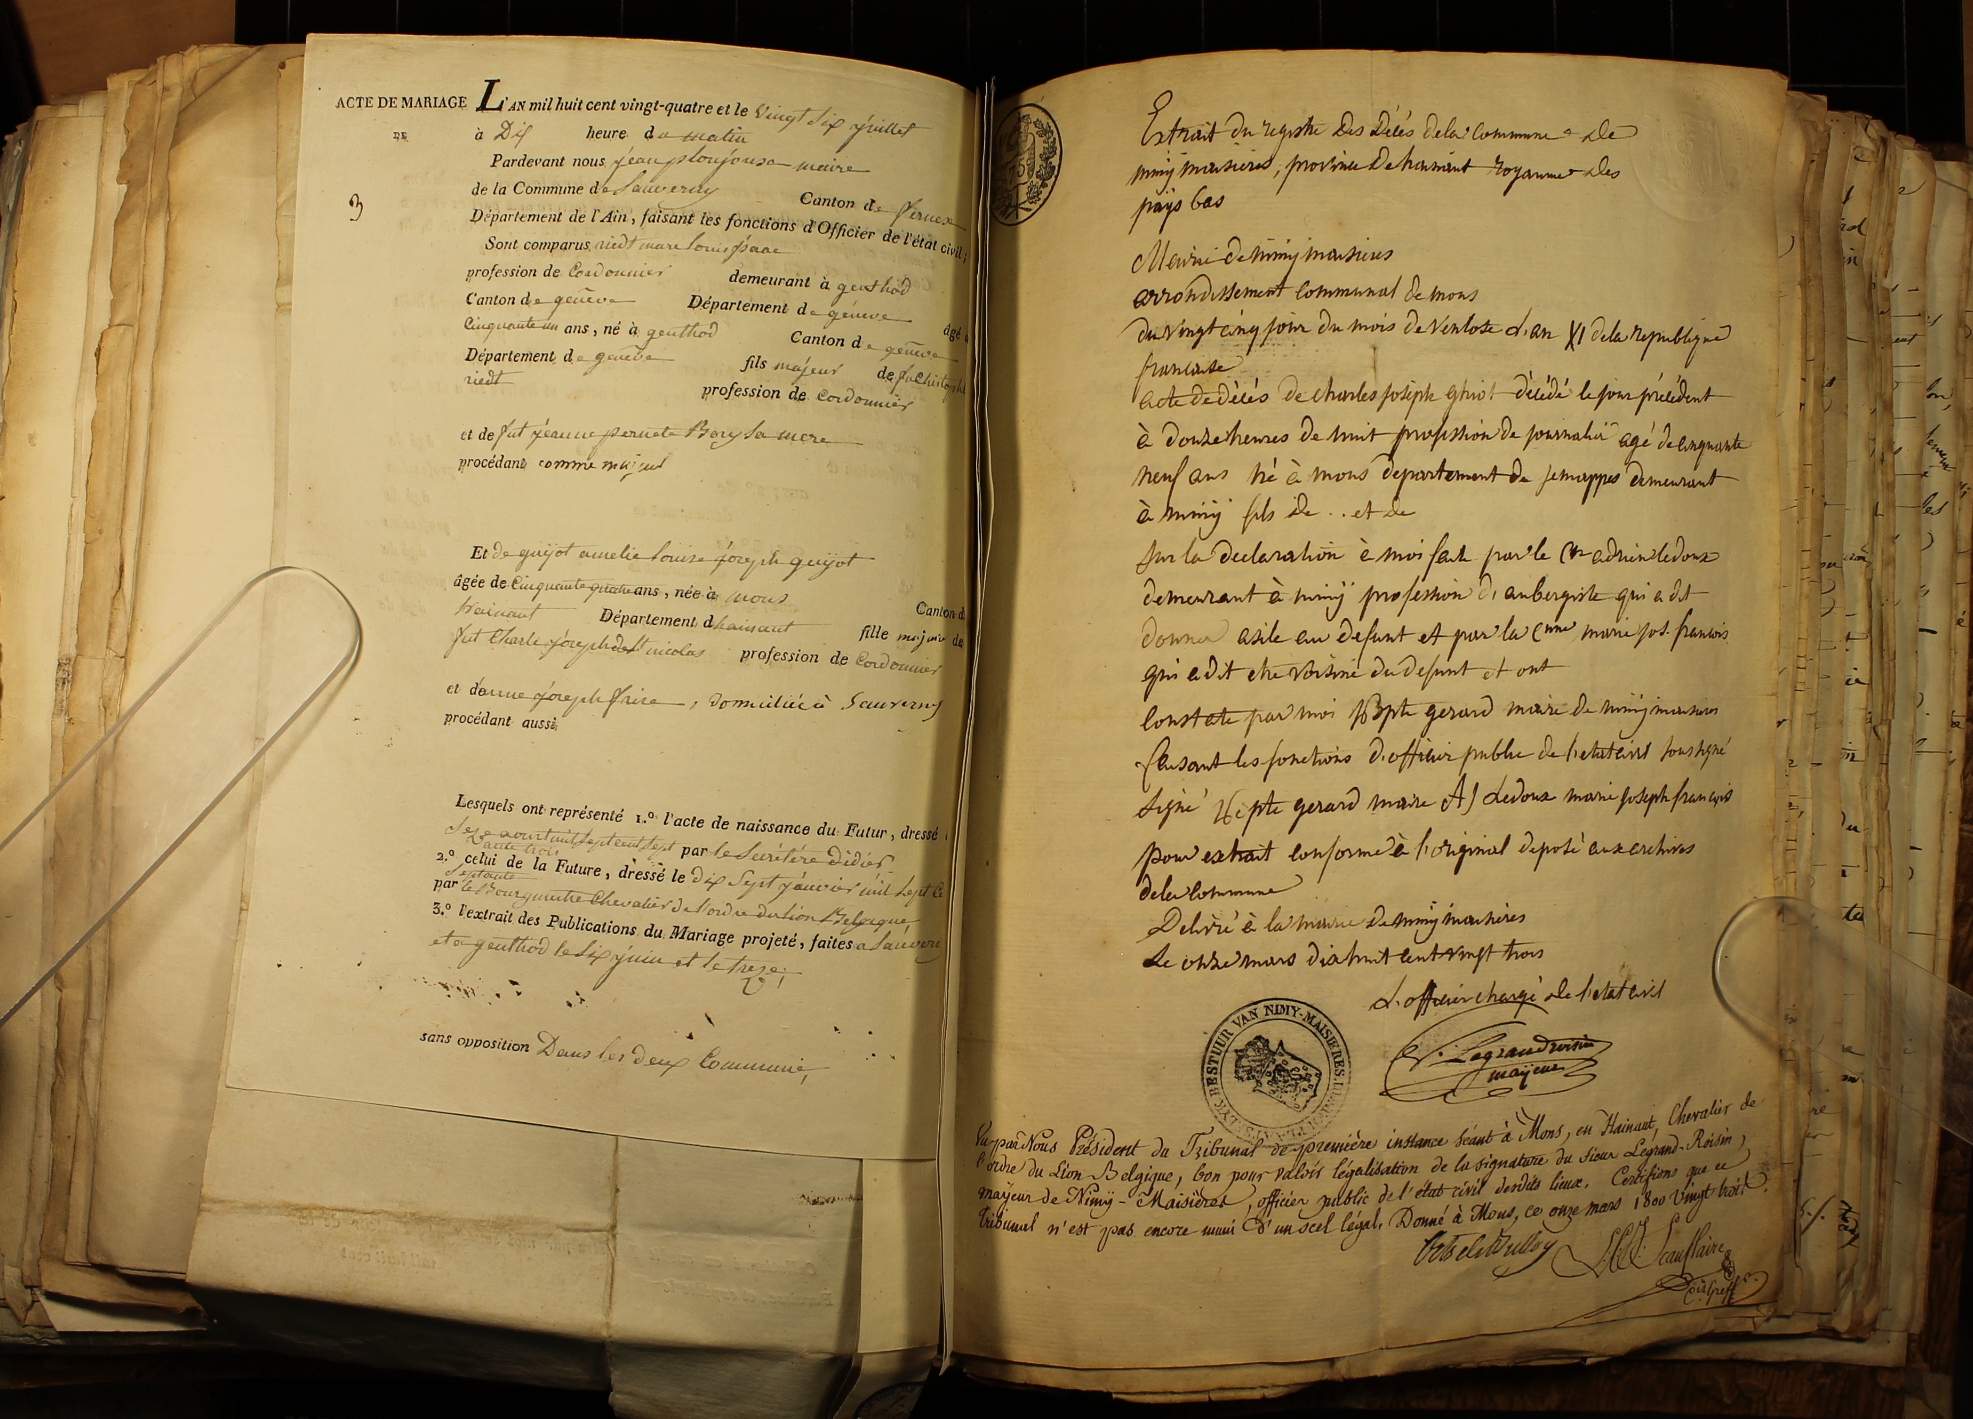 ACTE DE MARIAGE L'AN mil huit cent vingt-quatre et le vingt six juillet
DE à Dix heure du matin
Pardevant nous jean maire
3 de la Commune de Sauverny Canton de fernex
Département de l'Ain, faisant les fonctions d'Officier de l'état civil;
Sont comparus riedt marc louis isaac
profession de Cordonnier demeurant à genthod
Canton de genève Département de genève âgé
Cinquante un ans, né à genthod Canton de genève
Département de genève fils majeur de fu Christophe
riedt profession de Cordonnier
et de fut jeanne pernete Bory sa mere
procédant comme majeur
Et de guijot amelie louise joseph guijot
âgée de Cinquante quatre ans, née à mons Canton d
hainaut Département d hainaut fille majeure de
fut Charle joseph nicolas profession de Cordonnier
et danne joseph frise, domiciliée à Sauverny
procédant aussi
Lesquels ont représenté 1.º l'acte de naissance du Futur, dressé
par le Secrétére Didier
2.º celui de la Future, dressé le dix Sept janvier mil Sept
Septante
par le Bourgmestre Chevalier de l'ordre du Lion Belgique
3.º l'extrait des Publications du Mariage projeté, faites a Sauverny
et a genthod le Six juin et le treze;
sans opposition Dans les deux Commune,
Extrait du registre des Décés de la Commune de
nimÿ maisieres, province de hainaut royaume des
pays bas
Mairie de nimÿ maisieres
arrondissement communal de mons
du vingt cinq jour du mois de Ventose l'an XI de la republique
francaise
acte de décés de charles joseph ghiot décédé le jour précédent
à douze heures de nuit profession de journalier agé de cinquante
neuf ans né à mons departement de jemappes demeurant
à nimÿ fils de .. et de
sur la declaration à moi faite par le Cen adrien ledoux
demeurant à nimÿ profession d'aubergiste qui a dit
donner asile au defunt et par la Cnne marie jos. francois
qui a dit etre voisine du defunt et ont
Constaté par moi gerard maire de nimÿ maisieres
faisant les fonctions d'officier public de l'etat civil soussigné
signé gerard maire A J Ledoux marie joseph francois
pour extrait conforme à l'original deposé aux archives
de la Commune
Delivré à la mairie de nimÿ maisieres
Le onze mars dixhuit cent vingt trois
L'officier chargé de l'etat civil
Legrand roisin
mayeur
BESTUUR VAN NIMY-MAISIERES
Vu par Nous Président du Tribunal de première instance séant à Mons, en Hainaut, Chevalier de
l'ordre du Lion Belgique, bon pour valoir légalisation de la signature du sieur Legrand-Roisin,
mayeur de Nimÿ-Maisieres, officier public de l'état civil desdits lieux. Certifions que ce
tribunal n'est pas encore muni d'un scel légal. Donné à Mons, ce onze mars 1800 Vingt trois.